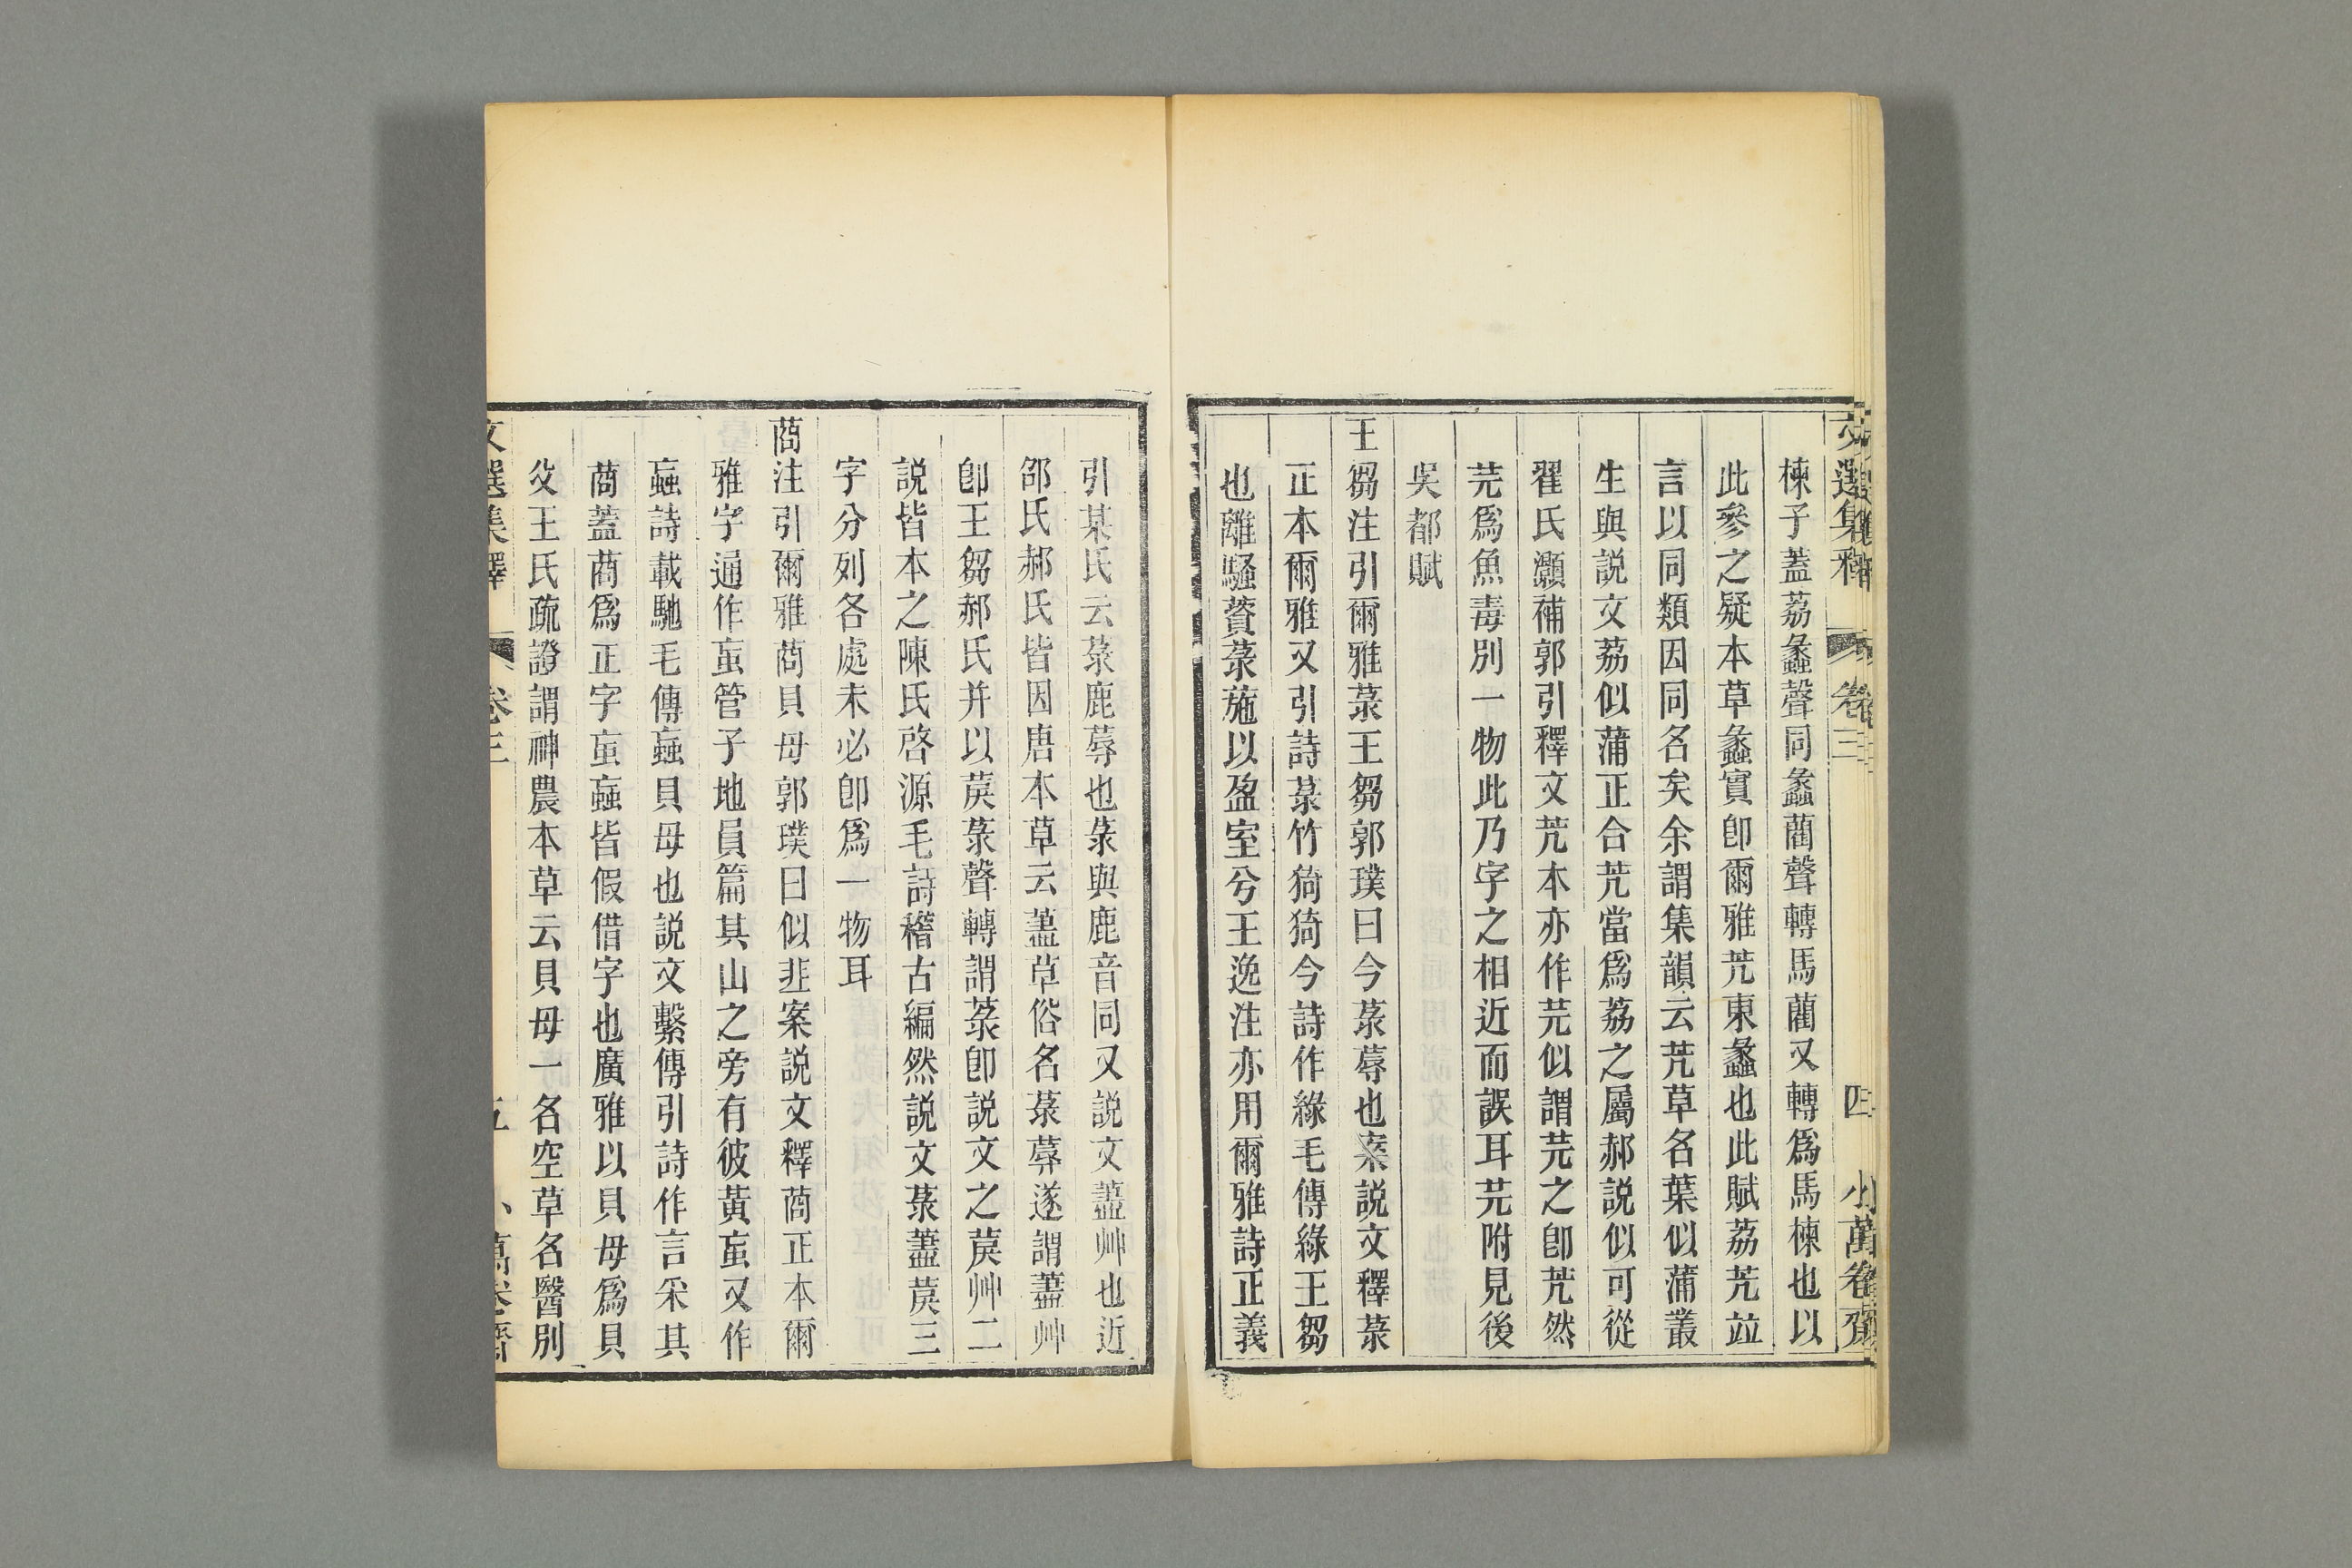 文選集釋 卷三 四 小萬卷齋
楝子蓋荔蠡聲同蠡藺聲轉馬藺又轉爲馬楝也以
此參之疑本草蠡實卽爾雅艽東蠡也此賦荔艽竝
言以同類因同名矣余謂集韻云艽草名葉似蒲叢
生與説文荔似蒲正合艽當爲荔之屬郝説似可從
翟氏灝補郭引釋文艽本亦作芫似謂芫之卽艽然
芫爲魚毒別一物此乃字之相近而誤耳芫附見後
吳都賦
王芻注引爾雅菉王芻郭璞曰今菉蓐也案説文釋菉
正本爾雅又引詩菉竹猗猗今詩作綠毛傳綠王芻
也離騷薋菉葹以盈室兮王逸注亦用爾雅詩正義
引某氏云菉鹿蓐也菉與鹿音同又説文藎艸也近
邵氏郝氏皆因唐本草云藎草俗名菉蓐遂謂藎艸
卽王芻郝氏并以莀菉聲轉謂菉卽説文之莀艸二
説皆本之陳氏啓源毛詩稽古編然説文菉藎莀三
字分列各處未必卽爲一物耳
莔注引爾雅莔貝母郭璞曰似韭案説文釋莔正本爾
雅字通作䖟管子地員篇其山之旁有彼黃䖟又作
蝱詩載馳毛傳蝱貝母也説文繫傳引詩作言采其
莔蓋莔爲正字䖟蝱皆假借字也廣雅以貝母爲貝
父王氏疏證謂神農本草云貝母一名空草名醫別
文選集釋 卷三 五 小萬卷齋